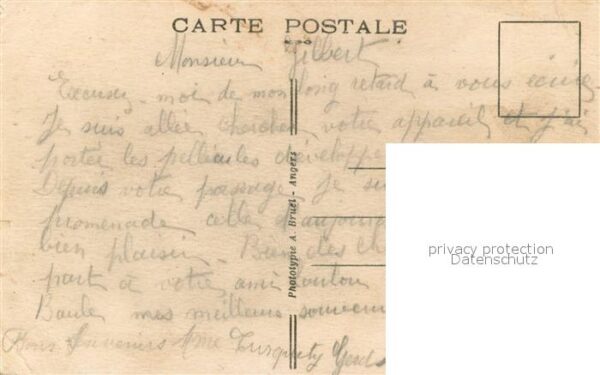 CARTE POSTALE
Monsieur Gilbert
Excusez-moi de mon long retard à vous écrire.
Je suis allée chercher votre appareil et j'ai
portée les pellicules développe
Depuis votre passage, je su
promenade celle d'aujourd
bien plaisir. Bien des ch
part à votre ami
Baule mes meilleurs souvenir
Bons Souvenirs Mme
Phototypie A. Bruel - Angers
privacy protection
Datenschutz